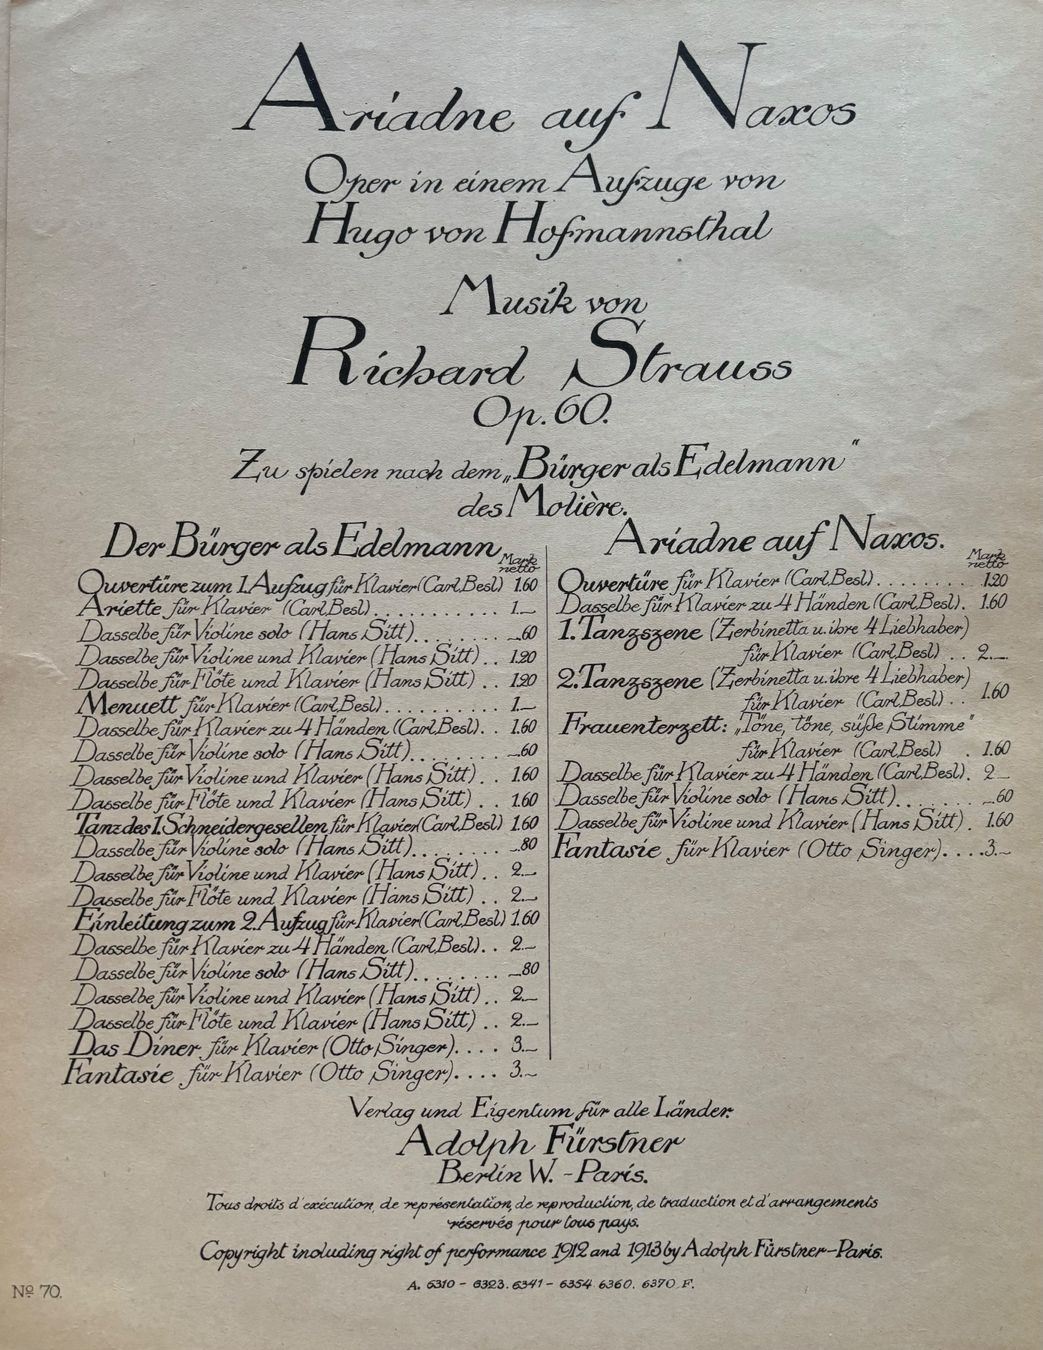 Ariadne auf Naxos
Oper in einem Aufzuge von
Hugo von Hofmannsthal
Musik von
Richard Strauss
Op. 60.
Zu spielen nach dem „Bürger als Edelmann“
des Molière.
Der Bürger als Edelmann
Mark
netto
Ouvertüre zum 1. Aufzug für Klavier (Carl Besl) 1.60
Ariette für Klavier (Carl Besl) . . . . . . . . . . . 1.—
Dasselbe für Violine solo (Hans Sitt) . . . . . . . . —.60
Dasselbe für Violine und Klavier (Hans Sitt) . . 1.20
Dasselbe für Flöte und Klavier (Hans Sitt) . . 1.20
Menuett für Klavier (Carl Besl) . . . . . . . . . . 1.—
Dasselbe für Klavier zu 4 Händen (Carl Besl) . . 1.60
Dasselbe für Violine solo (Hans Sitt) . . . . . . . . —.60
Dasselbe für Violine und Klavier (Hans Sitt) . . 1.60
Dasselbe für Flöte und Klavier (Hans Sitt) . . 1.60
Tanz des 1. Schneidergesellen für Klavier (Carl Besl) 1.60
Dasselbe für Violine solo (Hans Sitt) . . . . . . . . —.80
Dasselbe für Violine und Klavier (Hans Sitt) . . 2.—
Dasselbe für Flöte und Klavier (Hans Sitt) . . 2.—
Einleitung zum 2. Aufzug für Klavier (Carl Besl) 1.60
Dasselbe für Klavier zu 4 Händen (Carl Besl) . . 2.—
Dasselbe für Violine solo (Hans Sitt) . . . . . . . . —.80
Dasselbe für Violine und Klavier (Hans Sitt) . . 2.—
Dasselbe für Flöte und Klavier (Hans Sitt) . . 2.—
Das Diner für Klavier (Otto Singer) . . . . 3.—
Fantasie für Klavier (Otto Singer) . . . . 3.—
Ariadne auf Naxos.
Mark
netto
Ouvertüre für Klavier (Carl Besl) . . . . . . . . 1.20
Dasselbe für Klavier zu 4 Händen (Carl Besl) . 1.60
1. Tanzszene (Zerbinetta u. ihre 4 Liebhaber)
für Klavier (Carl Besl) . . 2.—
2. Tanzszene (Zerbinetta u. ihre 4 Liebhaber)
für Klavier (Carl Besl) . . 1.60
Frauenterzett: „Töne, töne, süße Stimme“
für Klavier (Carl Besl) . 1.60
Dasselbe für Klavier zu 4 Händen (Carl Besl) . 2.—
Dasselbe für Violine solo (Hans Sitt) . . . . . . . —.60
Dasselbe für Violine und Klavier (Hans Sitt) . 1.60
Fantasie für Klavier (Otto Singer) . . . . 3.—
Verlag und Eigentum für alle Länder.
Adolph Fürstner
Berlin W. – Paris.
Tous droits d'exécution, de représentation, de reproduction, de traduction et d'arrangements
réservés pour tous pays.
Copyright including right of performance 1912 and 1913 by Adolph Fürstner–Paris.
A. 6310 – 6323. 6341 – 6354. 6360. 6370. F.
No 70.